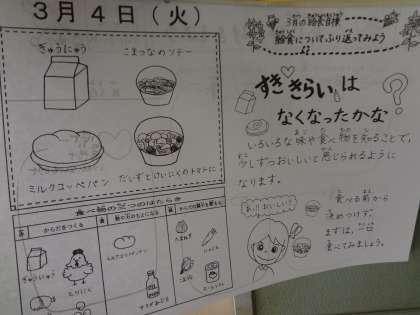 3月4日(火)
ぎゅうにゅう
こまつなのソテー
ミルクコッペパン
だいずととりにくのトマトに
食べ物の三つのはたらき
赤 からだをつくる
ぎゅうにゅう
とりにく
ミルクコッペパン
たまねぎ
にんじん
3月の給食目標
給食についてふり返ってみよう
すききらいは
なくなったかな?
いろいろな味や食べ物を知ることで、
少しずつおいしいと感じられるように
なります。
あ!!おいしい!
食べる前から
決めつけず、
まずは、一口
食べてみましょう。